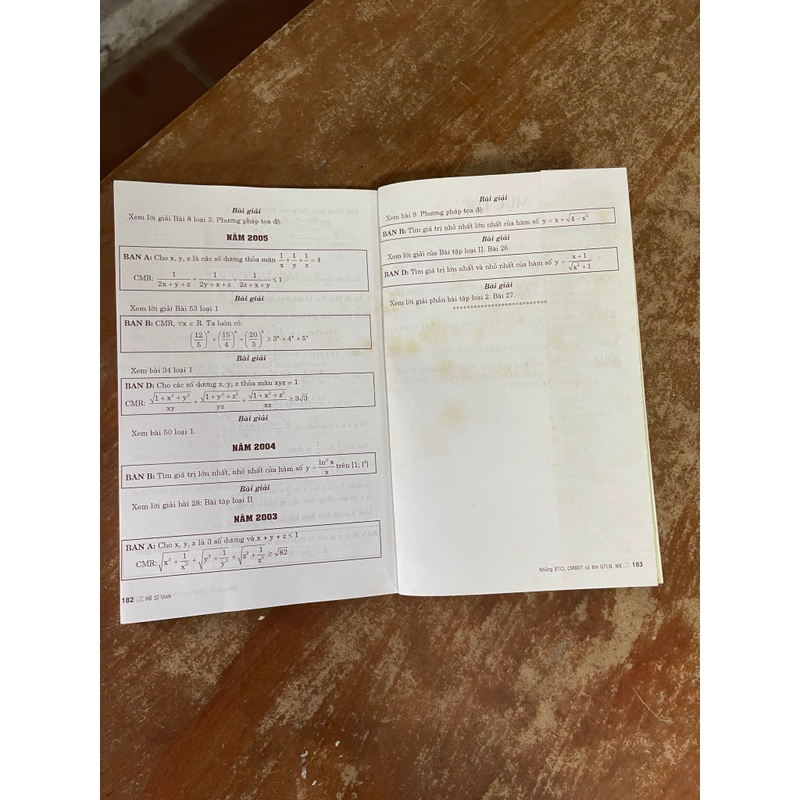 Bài giải
Xem lời giải Bài 8 loại 3: Phương pháp tọa độ.
NĂM 2005
BAN A: Cho x, y, z là các số dương thỏa mãn 1/x + 1/y + 1/z = 4
CMR: 1/(2x + y + z) + 1/(2y + x + z) + 1/(2z + x + y) ≤ 1
Bài giải
Xem lời giải Bài 53 loại 1
BAN B: CMR, ∀x ∈ R. Ta luôn có:
(12/5)^x + (15/4)^x + (20/3)^x ≥ 3^x + 4^x + 5^x
Bài giải
Xem bài 34 loại 1
BAN D: Cho các số dương x, y, z thỏa mãn xyz = 1
CMR: √(1 + x³ + y³)/xy + √(1 + y³ + z³)/yz + √(1 + x³ + z³)/xz ≥ 3√3
Bài giải
Xem bài 50 loại 1.
NĂM 2004
BAN B: Tìm giá trị lớn nhất, nhỏ nhất của hàm số y = ln² x/x trên [1; l³]
Bài giải
Xem lời giải bài 28: Bài tập loại II
NĂM 2003
BAN A: Cho x, y, z là 3 số dương và x + y + z ≤ 1
CMR: √(x² + 1/x²) + √(y² + 1/y²) + √(z² + 1/z²) ≥ √82
182 Hồ Sĩ Vinh
Bài giải
Xem bài 9. Phương pháp tọa độ
BAN B: Tìm giá trị nhỏ nhất lớn nhất của hàm số y = x + √(4 − x²)
Bài giải
Xem lời giải của Bài tập loại II. Bài 26
BAN D: Tìm giá trị lớn nhất và nhỏ nhất của hàm số y = (x + 1)/√(x² + 1)
Bài giải
Xem lời giải phần bài tập loại 2. Bài 27.
*************************
Những BTCL CMBĐT và tìm GTLN, NN 183